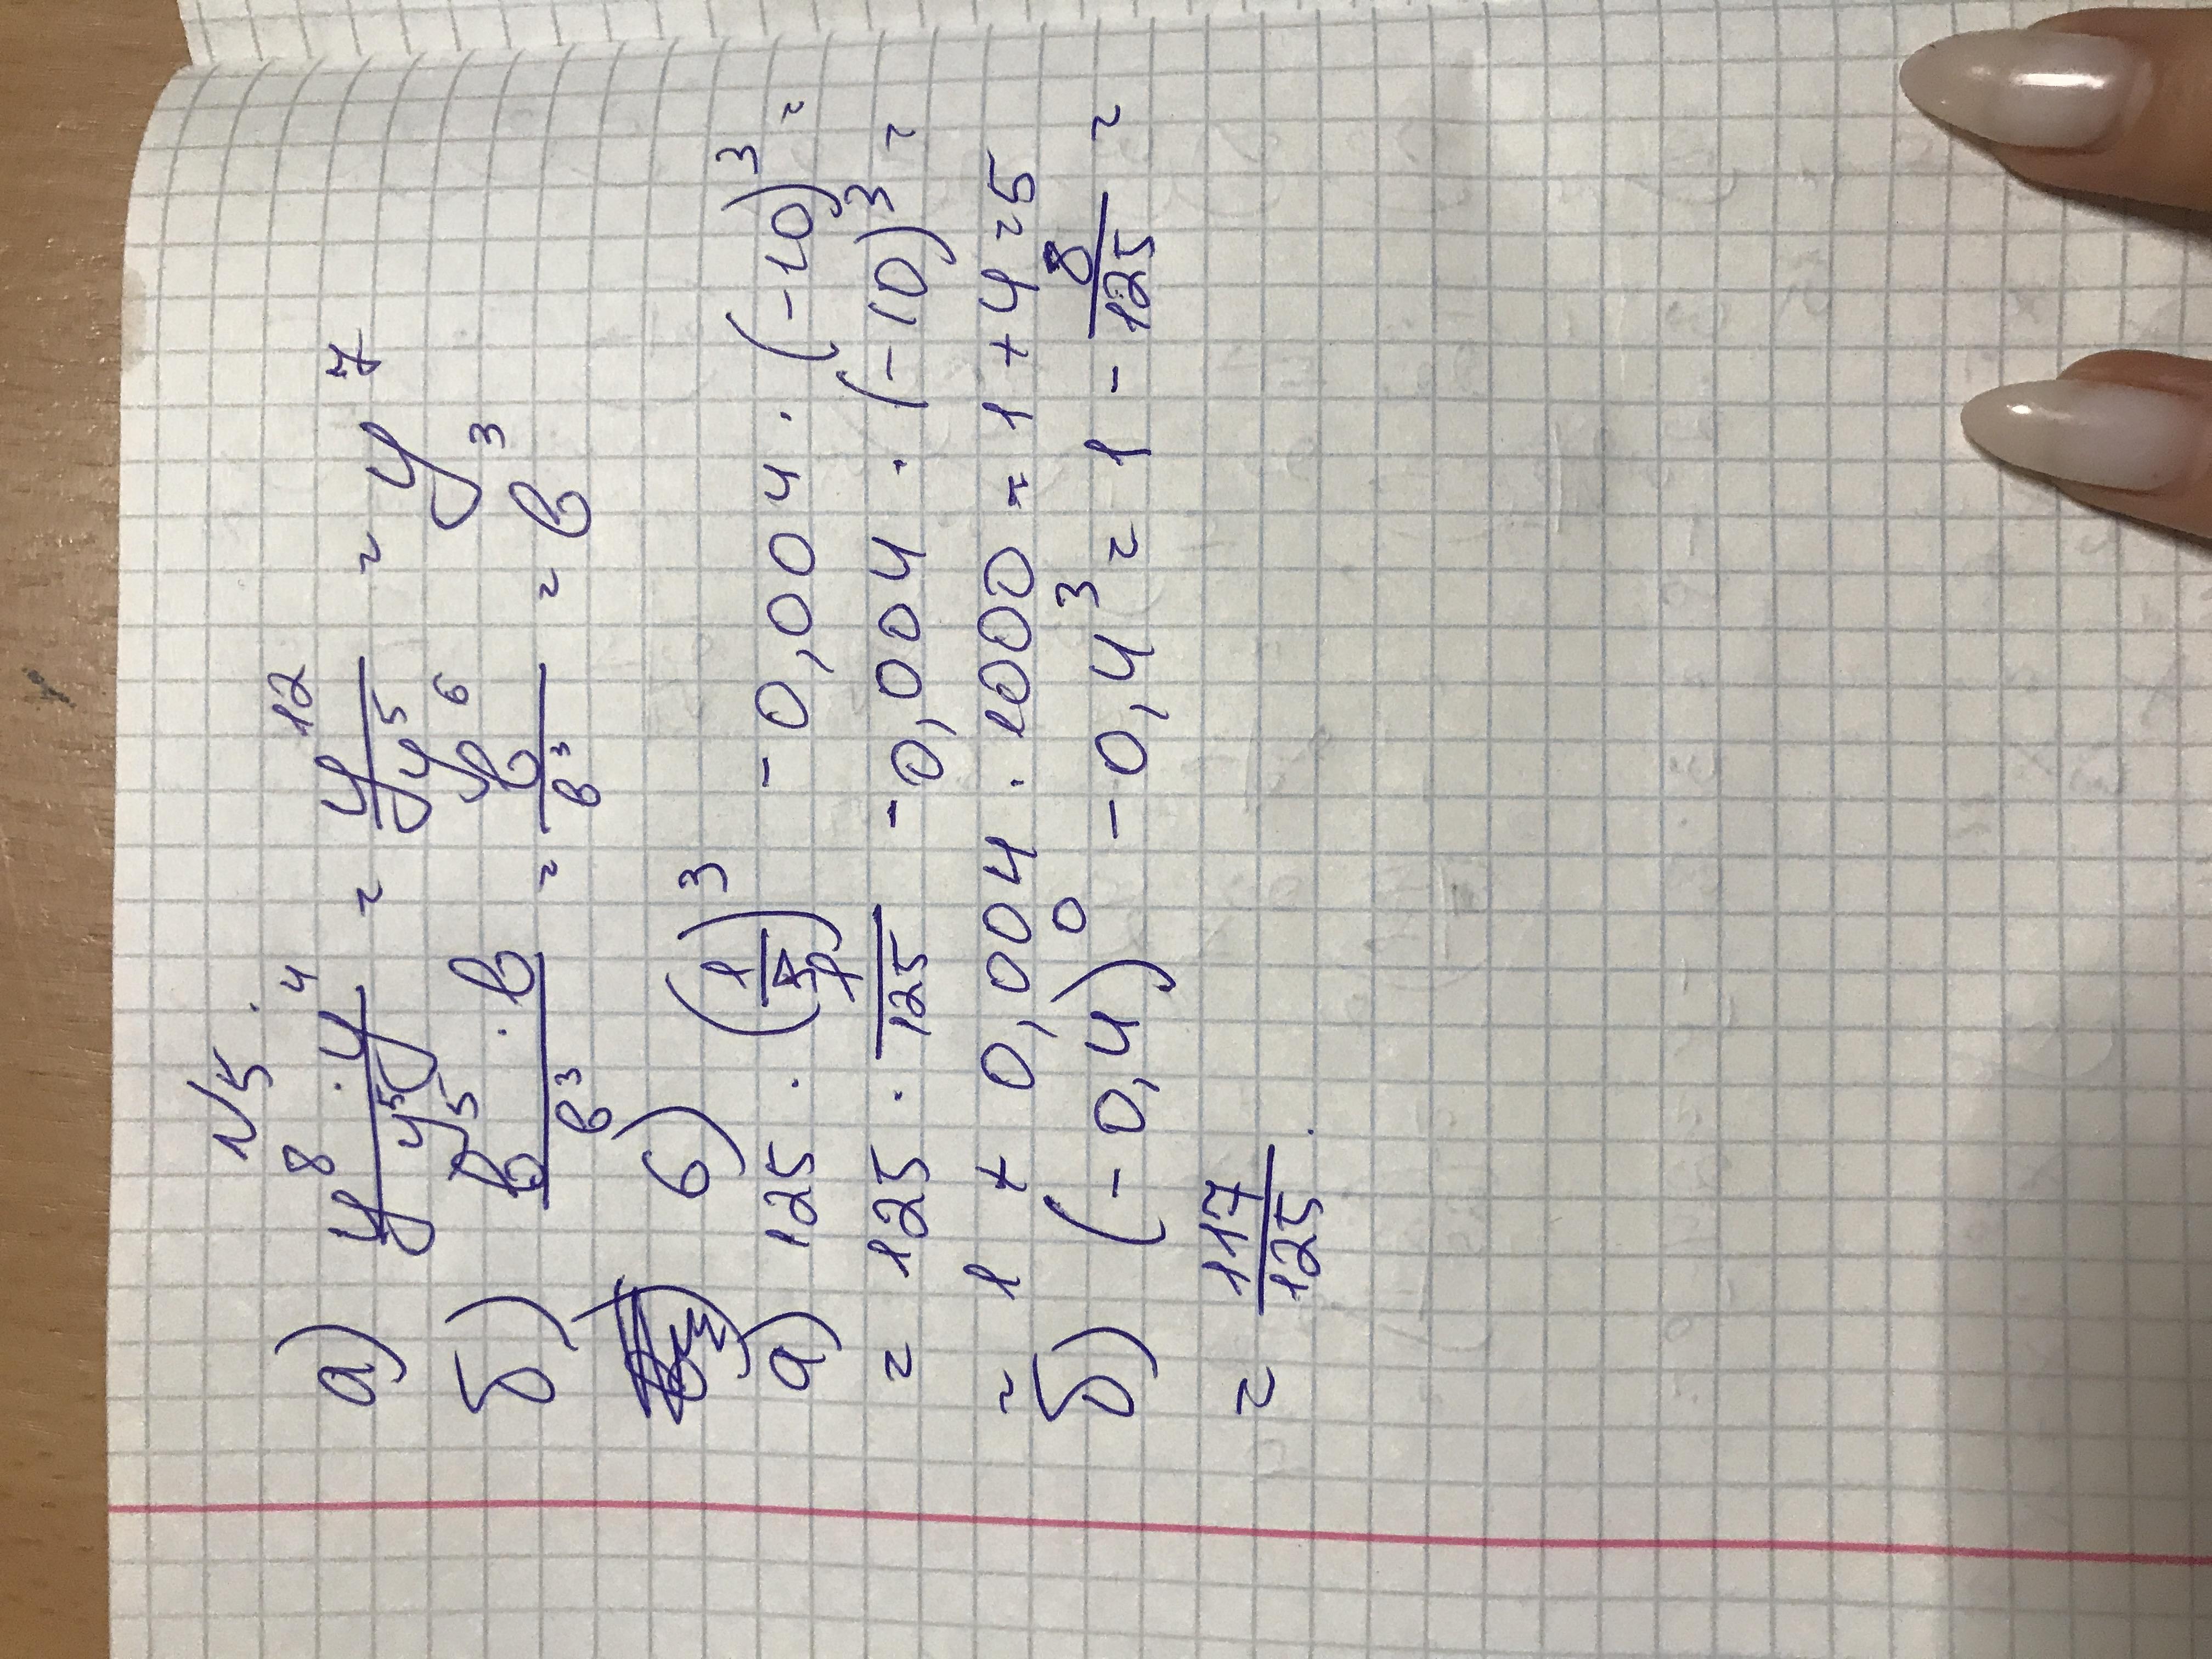 N5.
а) y⁸·y⁴/y⁵ = y¹²/y⁵ = y⁷
б) b⁵·b/b³ = b⁶/b³ = b³
6)
а) 125 · (1/5)³ - 0,004 · (-10)³ =
= 125 · 1/125 - 0,004 · (-10)³ =
= 1 + 0,004 · 1000 = 1 + 4 = 5
б) (-0,4)⁰ - 0,4³ = 1 - 8/125 =
= 117/125.